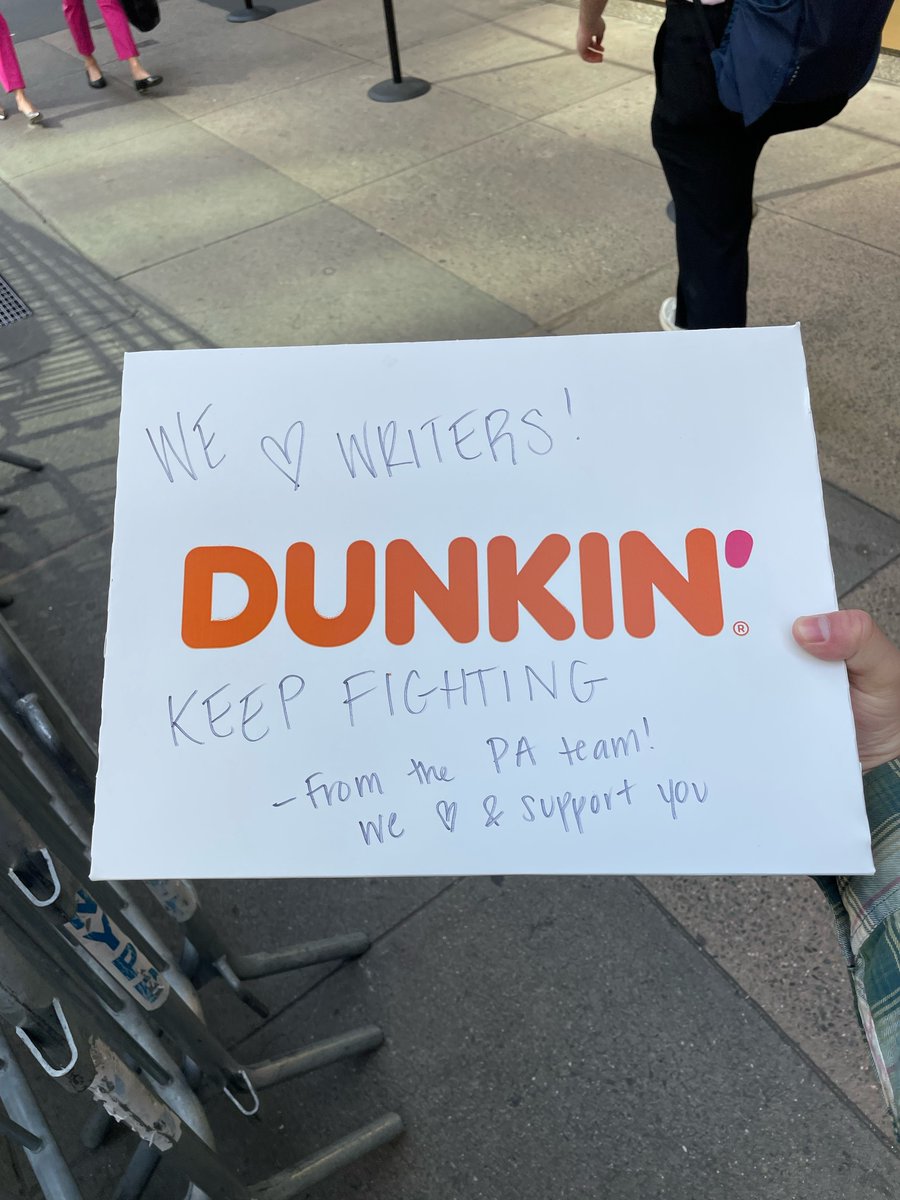 WE ♡ WRITERS!
DUNKIN'®
KEEP FIGHTING
- From the PA team!
we ♡ & support you
NYPD